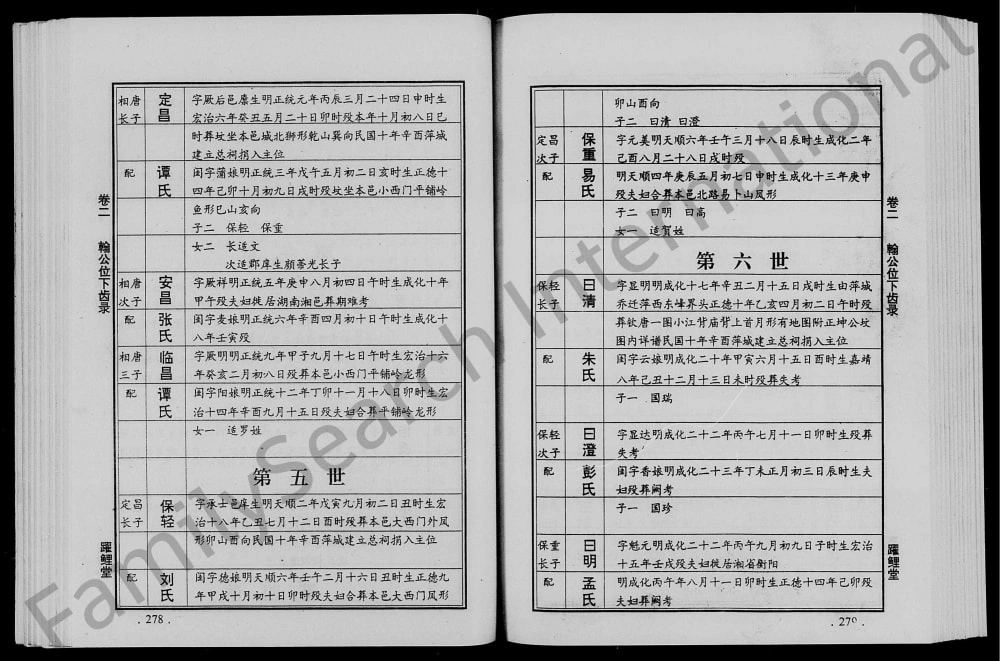 卷二 翰公位下齿录
相唐长子 定昌 字厥后邑廪生明正统元年丙辰三月二十四日申时生
宏治六年癸丑五月二十日卯时殁本年十月初八日巳
时葬坟坐本邑城北狮形乾山巽向民国十年辛酉萍城
建立总祠捐入主位
配 谭氏 闺字蒲娘明正统三年戊午五月初二日亥时生正德十
四年己卯十月初九日戌时殁坟坐本邑小西门平铺岭
鱼形巳山亥向
子二 保轻 保重
女二 长适文
次适鄢庠生颜蒂光长子
相唐次子 安昌 字厥祥明正统五年庚申八月初四日午时生成化十年
甲午殁夫妇徙居湖南湘邑葬期难考
配 张氏 闺字麦娘明正统六年辛酉四月十日午时生成化十
八年壬寅殁
相唐三子 临昌 字厥明明正统九年甲子九月十七日午时生宏治十六
年癸亥二月初八日殁葬本邑小西门平铺岭龙形
配 谭氏 闺字阳娘明正统十二年丁卯十一月十八日卯时生宏
治十四年辛酉九月十五日殁夫妇合葬平铺岭龙形
女一 适罗姓
第五世
定昌长子 保轻 字承士邑庠生明天顺二年戊寅九月初二日丑时生宏
治十八年乙丑七月十二日酉时殁葬本邑大西门外凤
形卯山酉向民国十年辛酉萍城建立总祠捐入主位
配 刘氏 闺字德娘明天顺六年壬午二月十六日丑时生正德九
年甲戌十月初十日卯时殁夫妇合葬本邑大西门凤形
躍鲤堂
. 278 .
卯山酉向
子二 曰清 曰澄
定昌次子 保重 字元美明天顺六年壬午三月十八日辰时生成化二年
己酉八月二十八日戌时殁
配 易氏 明天顺四年庚辰五月初七日申时生成化十三年庚申
殁夫妇合葬本邑北路易卜山凤形
子二 曰明 曰高
女一 适贺姓
第六世
保轻长子 曰清 字显明明成化十七年辛丑二月十五日戌时生由萍城
乔迁萍西东峰界头正德十年乙亥四月初二日午时殁
葬钦唐一图小江背庙背上首月形有地图附正坤公坟
图内详谱民国十年辛酉萍城建立总祠捐入主位
配 朱氏 闺字云娘明成化二十年甲寅六月十五日酉时生嘉靖
八年己丑十二月十三日未时殁葬失考
子一 国瑞
保轻次子 曰澄 字显达明成化二十二年丙午七月十一日卯时生殁葬
失考
配 彭氏 闺字香娘明成化二十三年丁未正月初三日辰时生夫
妇殁葬阙考
子一 国珍
保重长子 曰明 字魁元明成化二十二年丙午九月初九日子时生宏治
十五年壬戌殁夫妇徙居湘省衡阳
配 孟氏 明成化丙午年八月十一日卯时生正德十四年己卯殁
夫妇葬阙考
卷二 翰公位下齿录
躍鲤堂
. 279 .
FamilySearch International